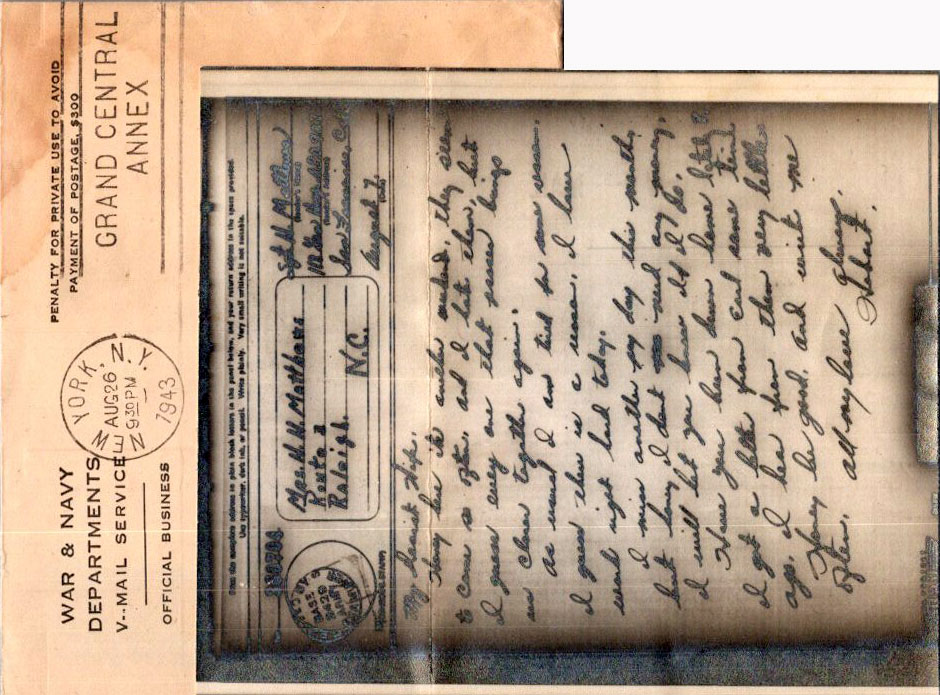 WAR & NAVY
DEPARTMENTS
V--MAIL SERVICE
OFFICIAL BUSINESS
NEW YORK, N.Y.
AUG 26
9 30 PM
1943
PENALTY FOR PRIVATE USE TO AVOID
PAYMENT OF POSTAGE, $300
GRAND CENTRAL
ANNEX
Print the complete address in plain block letters in the panel below, and your return address in the space provided.
Use typewriter, dark ink, or pencil. Write plainly. Very small writing is not suitable.
Mrs. H. H. Matthews
Route
Raleigh.
N.C.
Sgt. H. H. Matthews
San Francisco, Cal.
August 7,
My Sweetest Wife.
Honey here it is another weekend. They seem
to come so often. and I let them, but
I guess every one that passes brings
us closer together again.
As usual I am tired so me soon.
I guess there is a reason. I have
worked right hard today.
I miss another pay day this month,
but honey I dont need any money.
I will let you know if I do.
Have you been down home lately?
I got a letter from Carl some time
ago. I hear from them very little
Honey be good. and write me
often.
All my love always
Hubert.